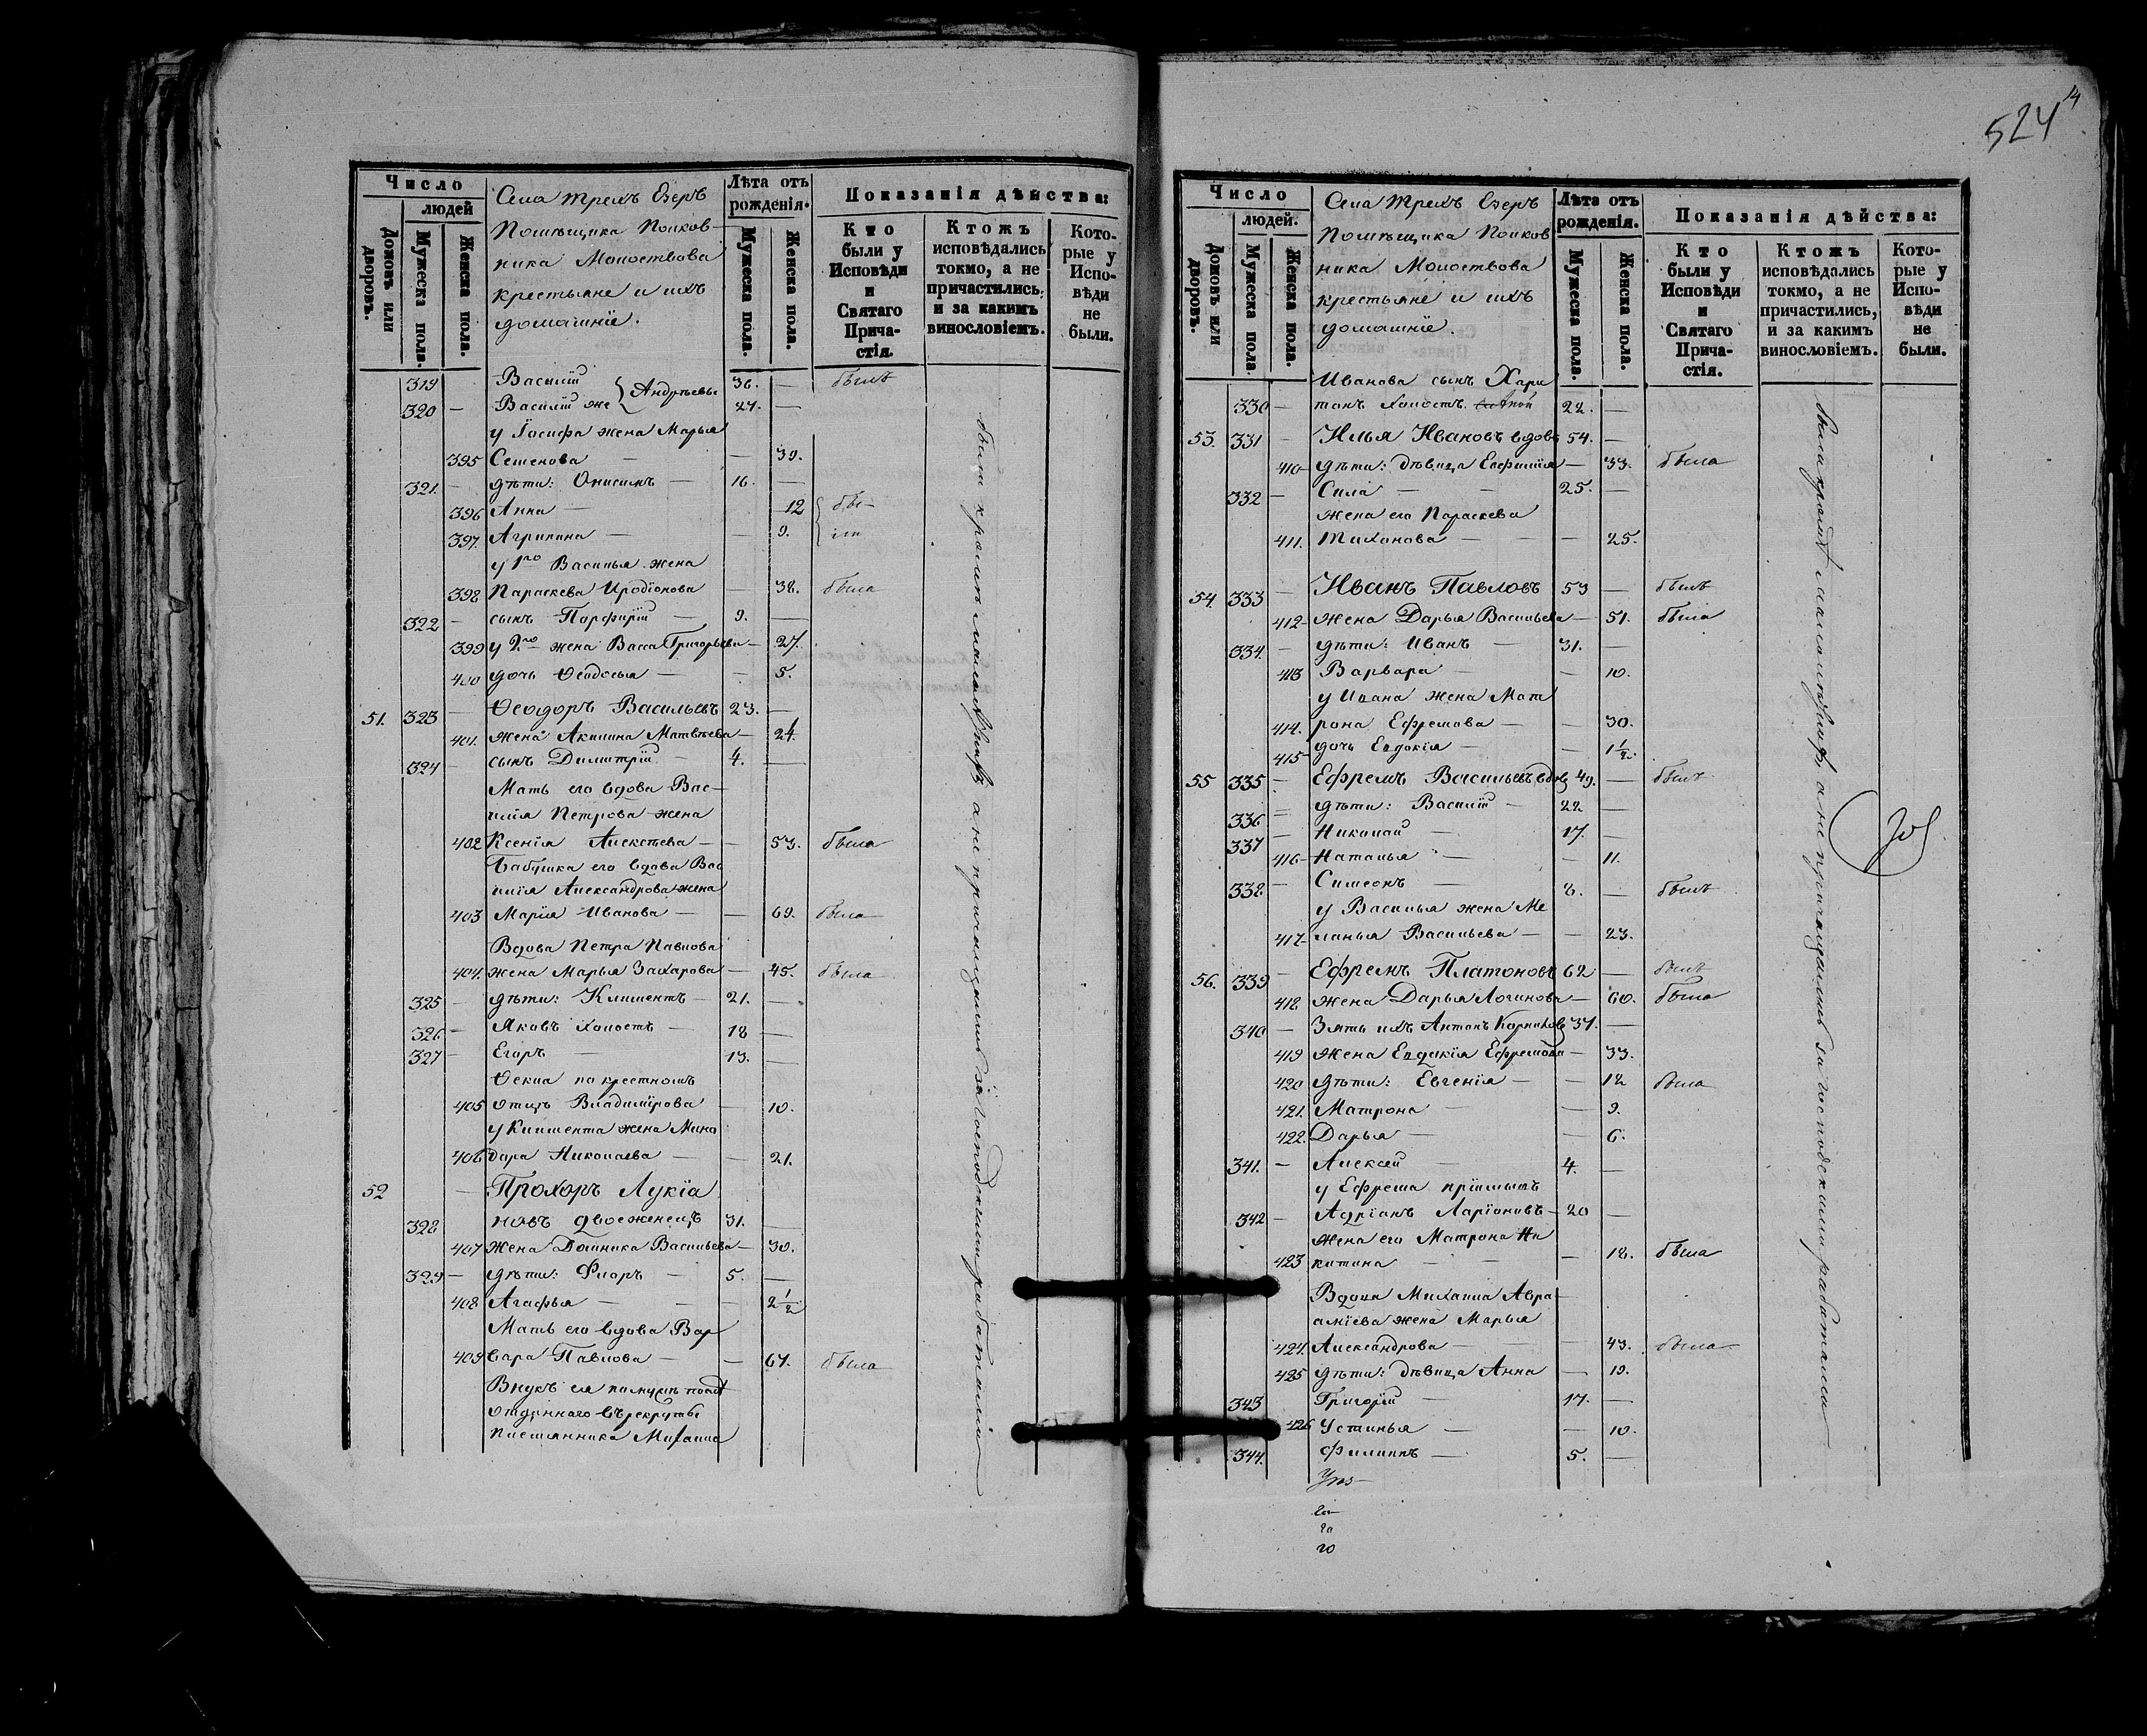 Число
людей
Домовъ или дворовъ.
Мужеска пола.
Женска пола.
Села Трехъ Озеръ
Помѣщика Полков-
ника Молоствова
крестьяне и ихъ
домашніе.
Лѣта отъ
рожденія.
Мужеска пола.
Женска пола.
Показанія дѣйства:
Кто
были у
Исповѣди
и
Святаго
Прича-
стія.
Ктожъ
исповѣдались
токмо, а не
причастились,
и за какимъ
винословіемъ.
Кото-
рые у
Испо-
вѣди
не
были.
319 Василій } Андрѣевы 36. — былъ
320 — Василій же 27. —
у Іосифа жена Марья
395 Семенова — — 39.
321. — дѣти: Онисимъ — 16. —
396 Анна — 12 } бы-
397. Агрипина — — 9. ли
у 1го Василья жена
398 Параскева Иродіонова — 38. была
322 — сынъ Порфирій — 9. —
399 у 2го жена Васса Григорьева — 27.
400 дочь Ѳеодосья — — 5.
51. 323 — Ѳеодоръ Васильевъ 23. —
401. жена Акилина Матвѣева — 24.
324 — сынъ Димитрій — 4. —
Мать его вдова Вас-
илія Петрова жена
402 Ксенія Алексѣева — — 53. была
Бабушка его вдова Вас
илія Александрова жена
403 Марія Иванова — — 69. была
Вдова Петра Павлова
404. жена Марья Захарова — 45. была
325 — дѣти: Климентъ — 21. —
326 — Яковъ холостъ — 18 —
327 — Егоръ — 13. —
Ѳекла по крестномъ
405 отцѣ Владимірова — 10.
у Климента жена Мино
406 дора Николаева — — 21.
52 — Прохоръ Лукіа
328 новъ двоеженецъ 31. —
407 жена Домника Васильева — 30.
329 — дѣти: Флоръ — 5. —
408 Агафья — — 2 1/2
Мать его вдова Вар
409 вара Павлова — — 67. была
Внукъ ея
отданнаго въ рекруты
племянника Михаила
были кромѣ малолѣтнихъ а не причащались за господскими работами
524
Число
людей.
Домовъ или дворовъ.
Мужеска пола.
Женска пола.
Села Трехъ Озеръ
Помѣщика Полков
ника Молоствова
крестьяне и ихъ
домашніе.
Лѣта отъ
рожденія.
Мужеска пола.
Женска пола.
Показанія дѣйства:
Кто
были у
Исповѣди
и
Святаго
Прича-
стія.
Ктожъ
исповѣдались
токмо, а не
причастились,
и за какимъ
винословіемъ.
Кото-
рые у
Испо-
вѣди
не
были.
Иванова сынъ Хари
330 — тонъ холостъ 22. —
53. 331 — Илья Ивановъ вдовъ 54. —
410 — дѣти: дѣвица Евфимія — 33. была
332 — Сила — — 25. —
жена его Параскева
411. Тихонова — — 25.
54. 333 — Иванъ Павловъ 53 — былъ
412 — жена Дарья Васильева — 51. была
334. — дѣти: Иванъ — 31. —
413 Варвара — — 10.
у Ивана жена Мат
414. рона Ефремова — — 30.
415 — дочь Евдокія — — 1 1/2.
55 335 — Ефремъ Васильевъ вдов 49. — былъ
336 — дѣти: Василій — 22 —
337 — Николай — 17. —
416 — Наталья — — 11.
338. — Симеонъ — 8. — былъ
у Василья жена Ме
417 — ланья Васильева — — 23.
56. 339 — Ефремъ Платоновъ 62 — былъ
418 жена Дарья Логинова — 60. была
340 — Зять ихъ Антонъ Корниловъ 37. —
419 жена Евдокія Ефремова — 33.
420 дѣти: Евгенія — — 12 была
421. Матрона — — 9.
422. Дарья — — 6.
341. — Алексѣй — 4. —
у Ефрема пріимышъ
342 — Адріанъ Ларіоновъ — 20 —
жена его Матрона Ни
423 китина — — — 18. была
Вдова Михаила Авра
аміева жена Марья
424. Александрова — — 43. была
425 дѣти: дѣвица Анна — 19.
343 Григорій — 17. —
426 Устинья — — 10.
344. Филиппъ — 5. —
были кромѣ малолѣтнихъ, а не причащались за господскими работами